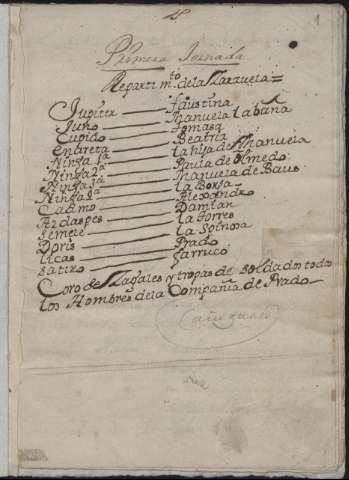 1
Primera Jornada
Repartim.to de la Zarzuela =
Jupiter — faustina
Juno — Manuela Labaña
Cupido — tomasa
Enareta — Beatriz
Ninfa 1ª — la hija de Manuela
Ninfa 2ª — Paula de Olmedo
Ninfa 3ª — Manuela de Baus
Ninfa 4ª — la Borja
Cadmo — Alexandro
Azdaspes — Damian
Semele — la torres
Doris — la Spinosa
Licas — Prado
Satiro — Garruco
Coro de Zagales y tropas de soldados todos
los Hombres de la Compañia de Prado